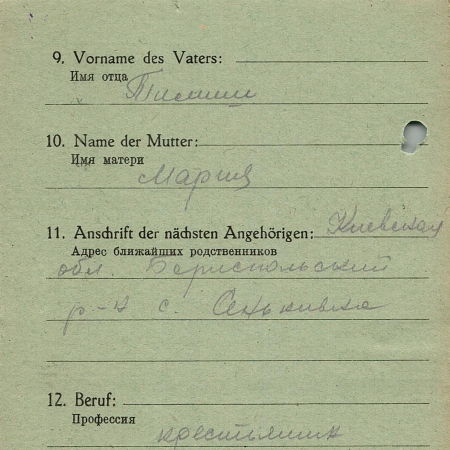 9. Vorname des Vaters:
Имя отца
10. Name der Mutter:
Имя матери
Мария
11. Anschrift der nächsten Angehörigen: Киевская
Адрес ближайших родственников
обл. Бориспольский
р-н с. Сеньковка
12. Beruf:
Профессия
крестьянин